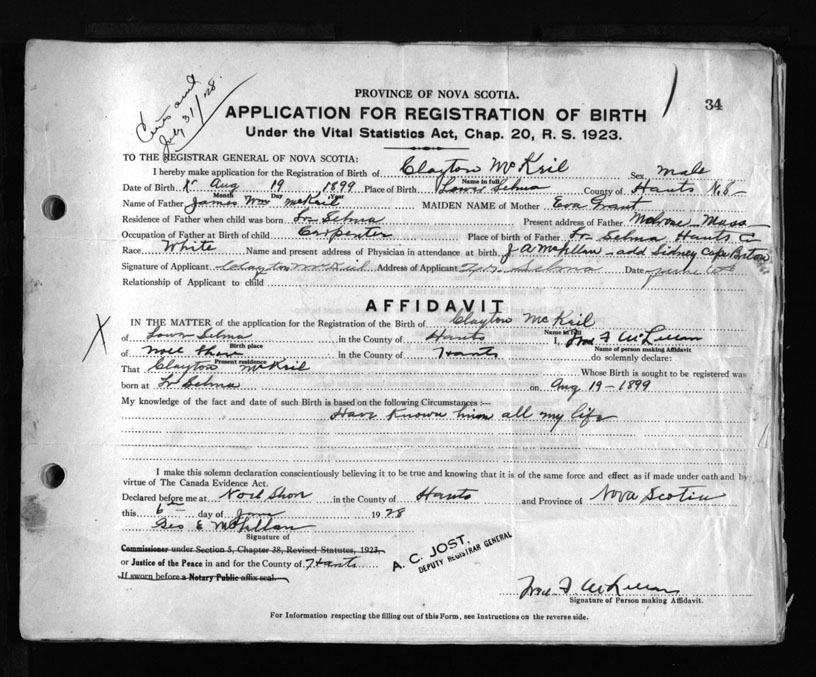 34
July 31/28.
PROVINCE OF NOVA SCOTIA.
APPLICATION FOR REGISTRATION OF BIRTH
Under the Vital Statistics Act, Chap. 20, R. S. 1923.
TO THE REGISTRAR GENERAL OF NOVA SCOTIA:
I hereby make application for the Registration of Birth of Clayton McKeil Sex male
Name in full
Date of Birth Aug 19 1899 Place of Birth Lower Selma County of Hants N.S.
Month Day Year
Name of Father James Wm McKeil MAIDEN NAME of Mother Eva Grant
Residence of Father when child was born Lr Selma Present address of Father Melrose Mass
Occupation of Father at Birth of child Carpenter Place of birth of Father Lr Selma Hants Co
Race White Name and present address of Physician in attendance at birth J A McLellan add Sidney Cape Breton
Signature of Applicant Clayton McKeil Address of Applicant Selma Date June 6th
Relationship of Applicant to child
AFFIDAVIT
X
IN THE MATTER of the application for the Registration of the Birth of Clayton McKeil
Name in full
of Lower Selma in the County of Hants I, Fred F McLellan
Birth place Name of person making Affidavit
of Noel Shore in the County of Hants do solemnly declare:
Present residence
That Clayton McKeil Whose Birth is sought to be registered was
born at Lr Selma on Aug 19-1899
My knowledge of the fact and date of such Birth is based on the following Circumstances:
Have known him all my life
I make this solemn declaration conscientiously believing it to be true and knowing that it is of the same force and effect as if made under oath and by
virtue of The Canada Evidence Act.
Declared before me at Noel Shore in the County of Hants and Province of Nova Scotia
this 6th day of June 1928
Geo E McLellan
Signature of
Commissioner under Section 5, Chapter 38, Revised Statutes, 1923,
or Justice of the Peace in and for the County of Hants
If sworn before a Notary Public affix seal.
A. C. JOST,
DEPUTY REGISTRAR GENERAL
Fred F McLellan
Signature of Person making Affidavit.
For Information respecting the filling out of this Form, see Instructions on the reverse side.